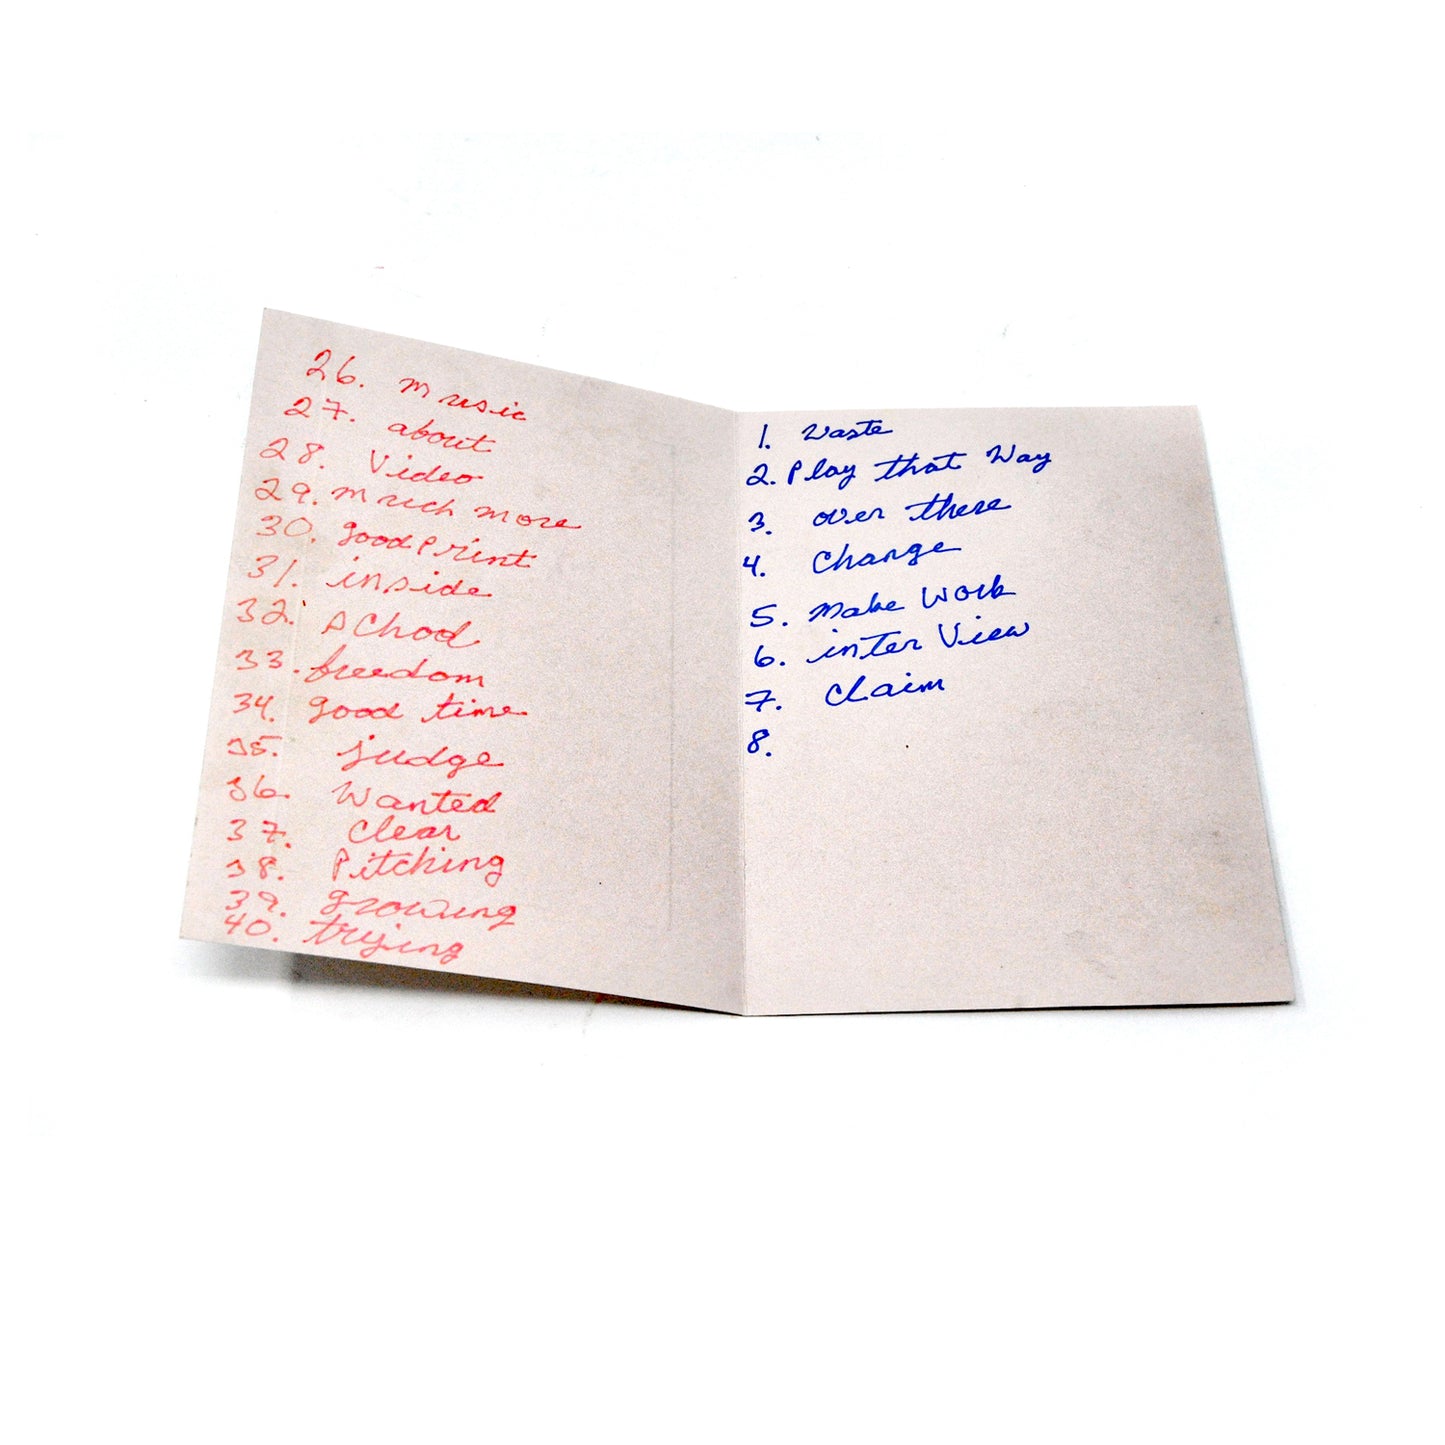 26. music
27. about
28. Video
29. much more
30. good Print
31. inside
32. School
33. freedom
34. good time
35. judge
36. Wanted
37. Clear
38. Pitching
39. growing
40. trying
1. Waste
2. Play that Way
3. over there
4. Change
5. Make Work
6. inter View
7. Claim
8.